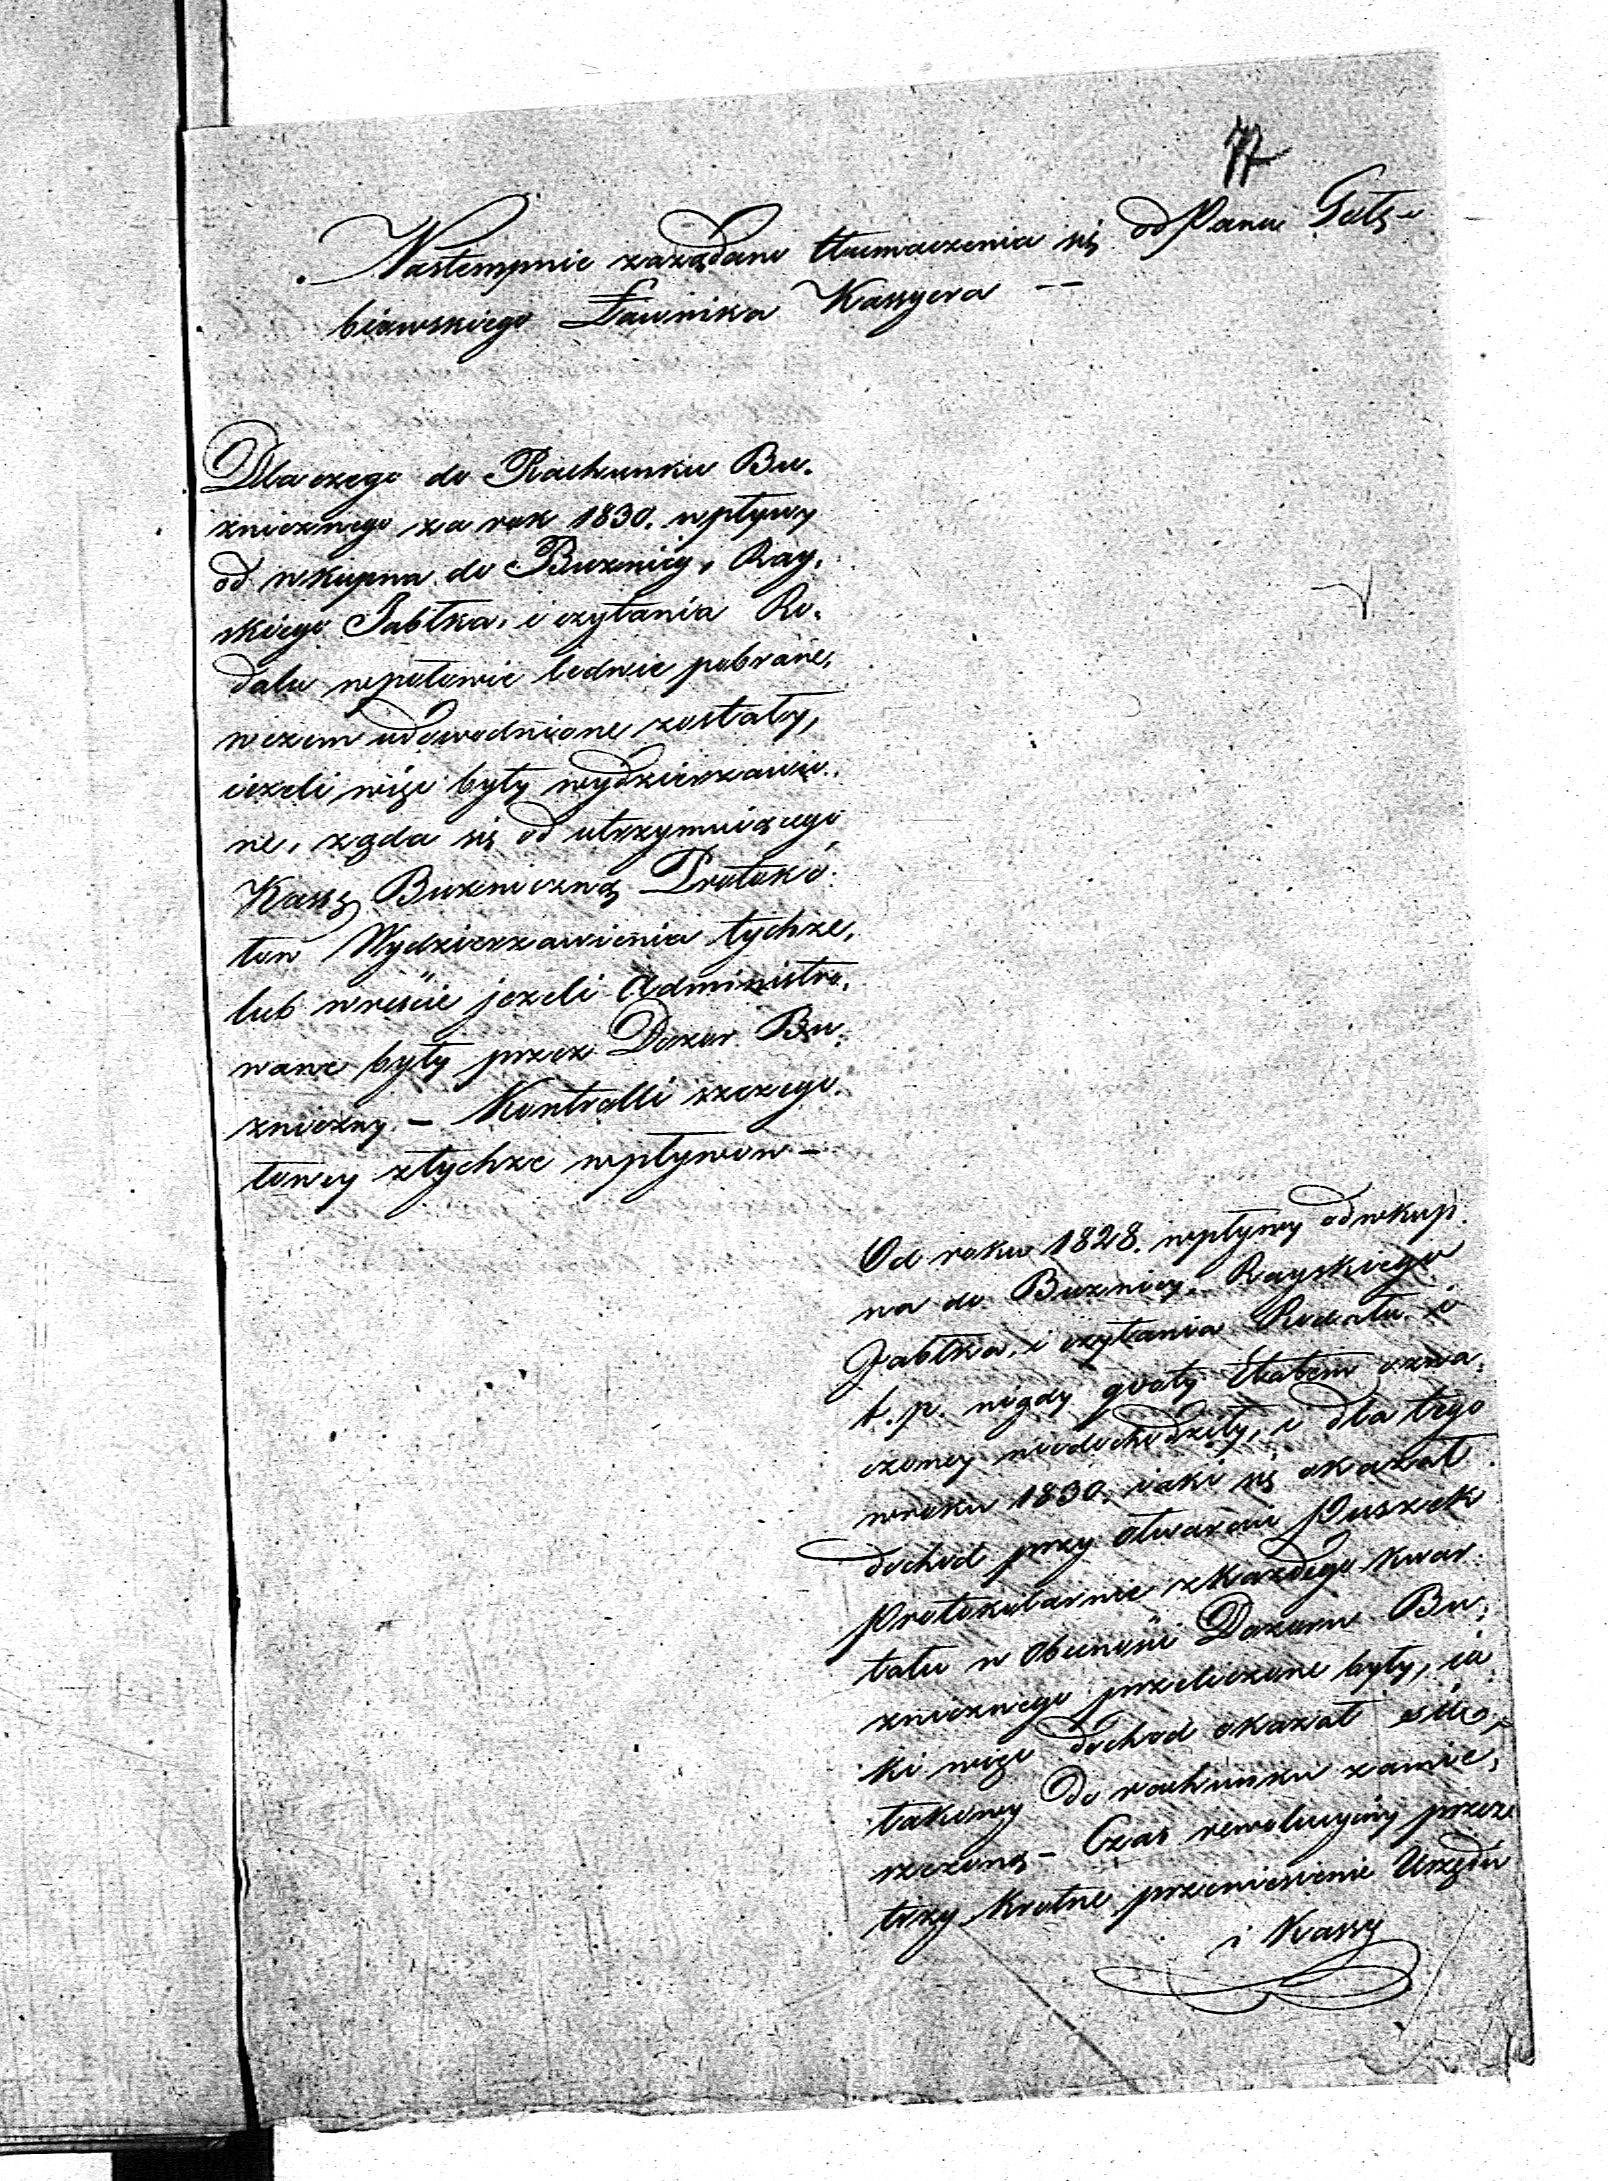 77
Nastempnie zażądano tłumaczenia się od Pana Gołę-
biowskiego Ławnika Kassyera —
Dlaczego do Rachunku Bu-
zniczego za rok 1830. wpływy
od wkupna do Buznicy, Ray-
skiego Jabłka, i czytania Ro-
dału wpołowie ledwie pobrane,
wczem udowodnione zostały,
ieżeli więc były wydzierzawio-
ne, żąda się od utrzymuiącego
Kassę Buzniczną Protokó-
łow Wydzierzawienia tychże,
lub wreście jezeli Administro-
wane były przez Dozor Bu-
zniczny – Kontrolli szczego-
łowey ztychże wpływow –
Od roku 1828. wpływy od wkup-
na do Buznicy, Rayskiego
Jabłka, i czytania Rodału i
t. p. nigdy quoty Etatem ozna-
czoney niedochodziły, i dla tego
wroku 1830. iaki się okazał
dochod przy otwarciu Puszek
Protokularnie zkażdego kwar-
tału w obecności Dozoru Bu-
znicznego przeliczone były, ia-
ki więc dochod okazał się
takowy do rachunku zamie-
szczono – Czas rewolucyiny przez
trzy krotne przeniesienie Urzędu
i Kassy